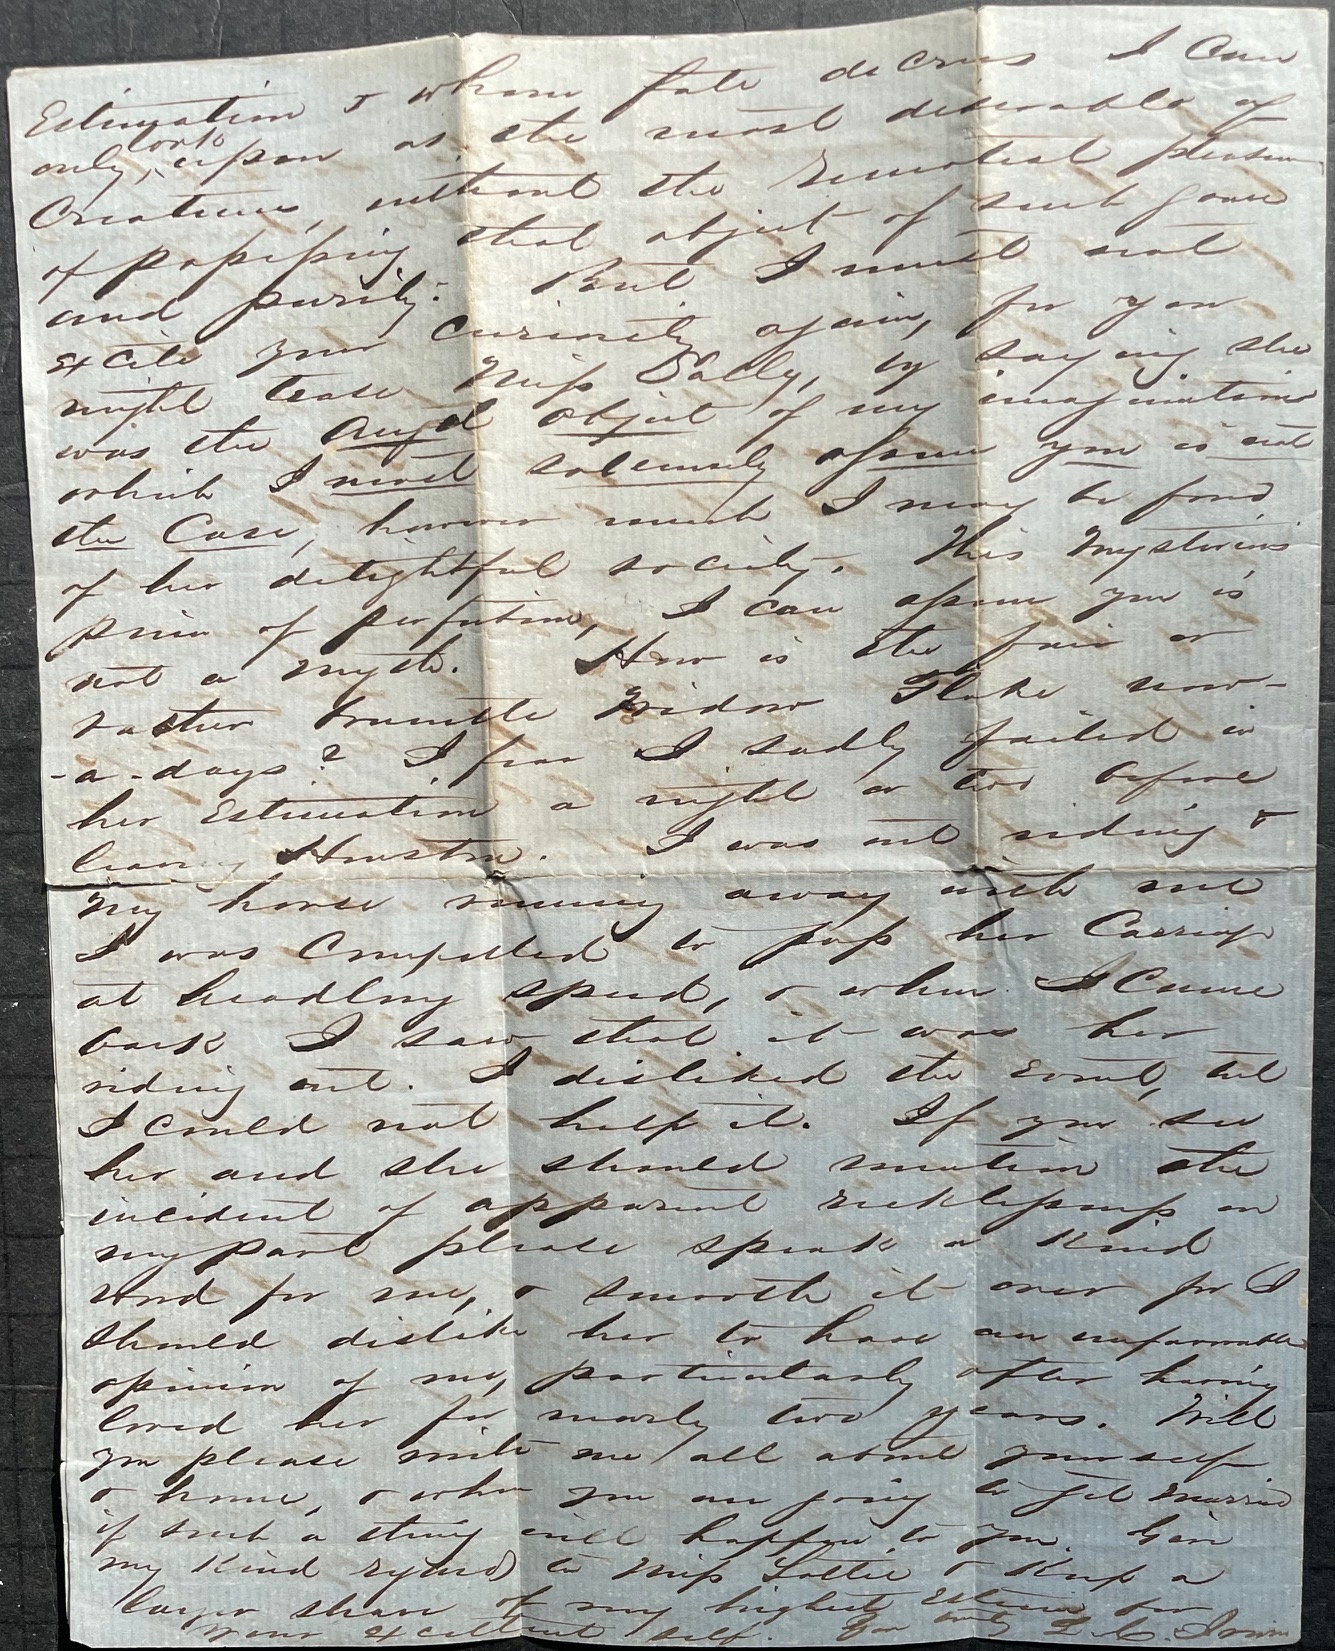 Estimation & whom fate decrees I can
only, look upon as the most desirable of
Creatures, without the remotest pleasure
of possessing that object of such grace
and purity. But I must not
excite your curiosity again, for you
might tease Miss Sally, by saying she
was the angel object of my imagination
which I most solemnly assure you is not
the Case, however much I may be fond
of her delightful society. This mysterious
piece of perfection, I can assure you is
not a myth. How is the fair or
rather brunette Widow Flake now-
-a-days? I fear I sadly failed in
her Estimation a night or two before
leaving Houston. I was out riding &
my horse running away with me
I was Compelled to pass her Carriage
at headlong speed, & when I Came
back I saw that it was her
riding out. I disliked the event, but
I could not help it. If you see
her and she should mention the
incident of apparent recklessness on
my part please speak a kind
word for me, & smooth it over for I
should dislike her to have an unfavorable
opinion of me, particularly after having
loved her for nearly two years. Will
you please write me all about yourself
& home, & when you are going to get married
if such a thing will happen to you. Give
my kind regards to Miss Lottie & Keep a
larger share of my highest Esteem for
your excellent self. You truly Irvin